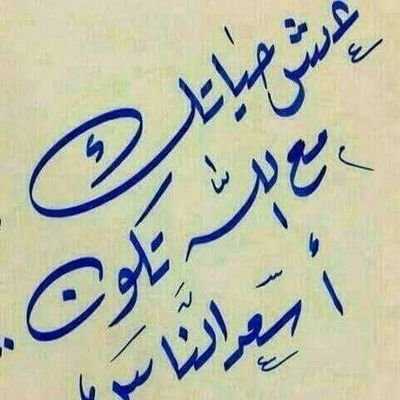 عِش حياتك
مع اللّه تكون
أسعد النَّاس